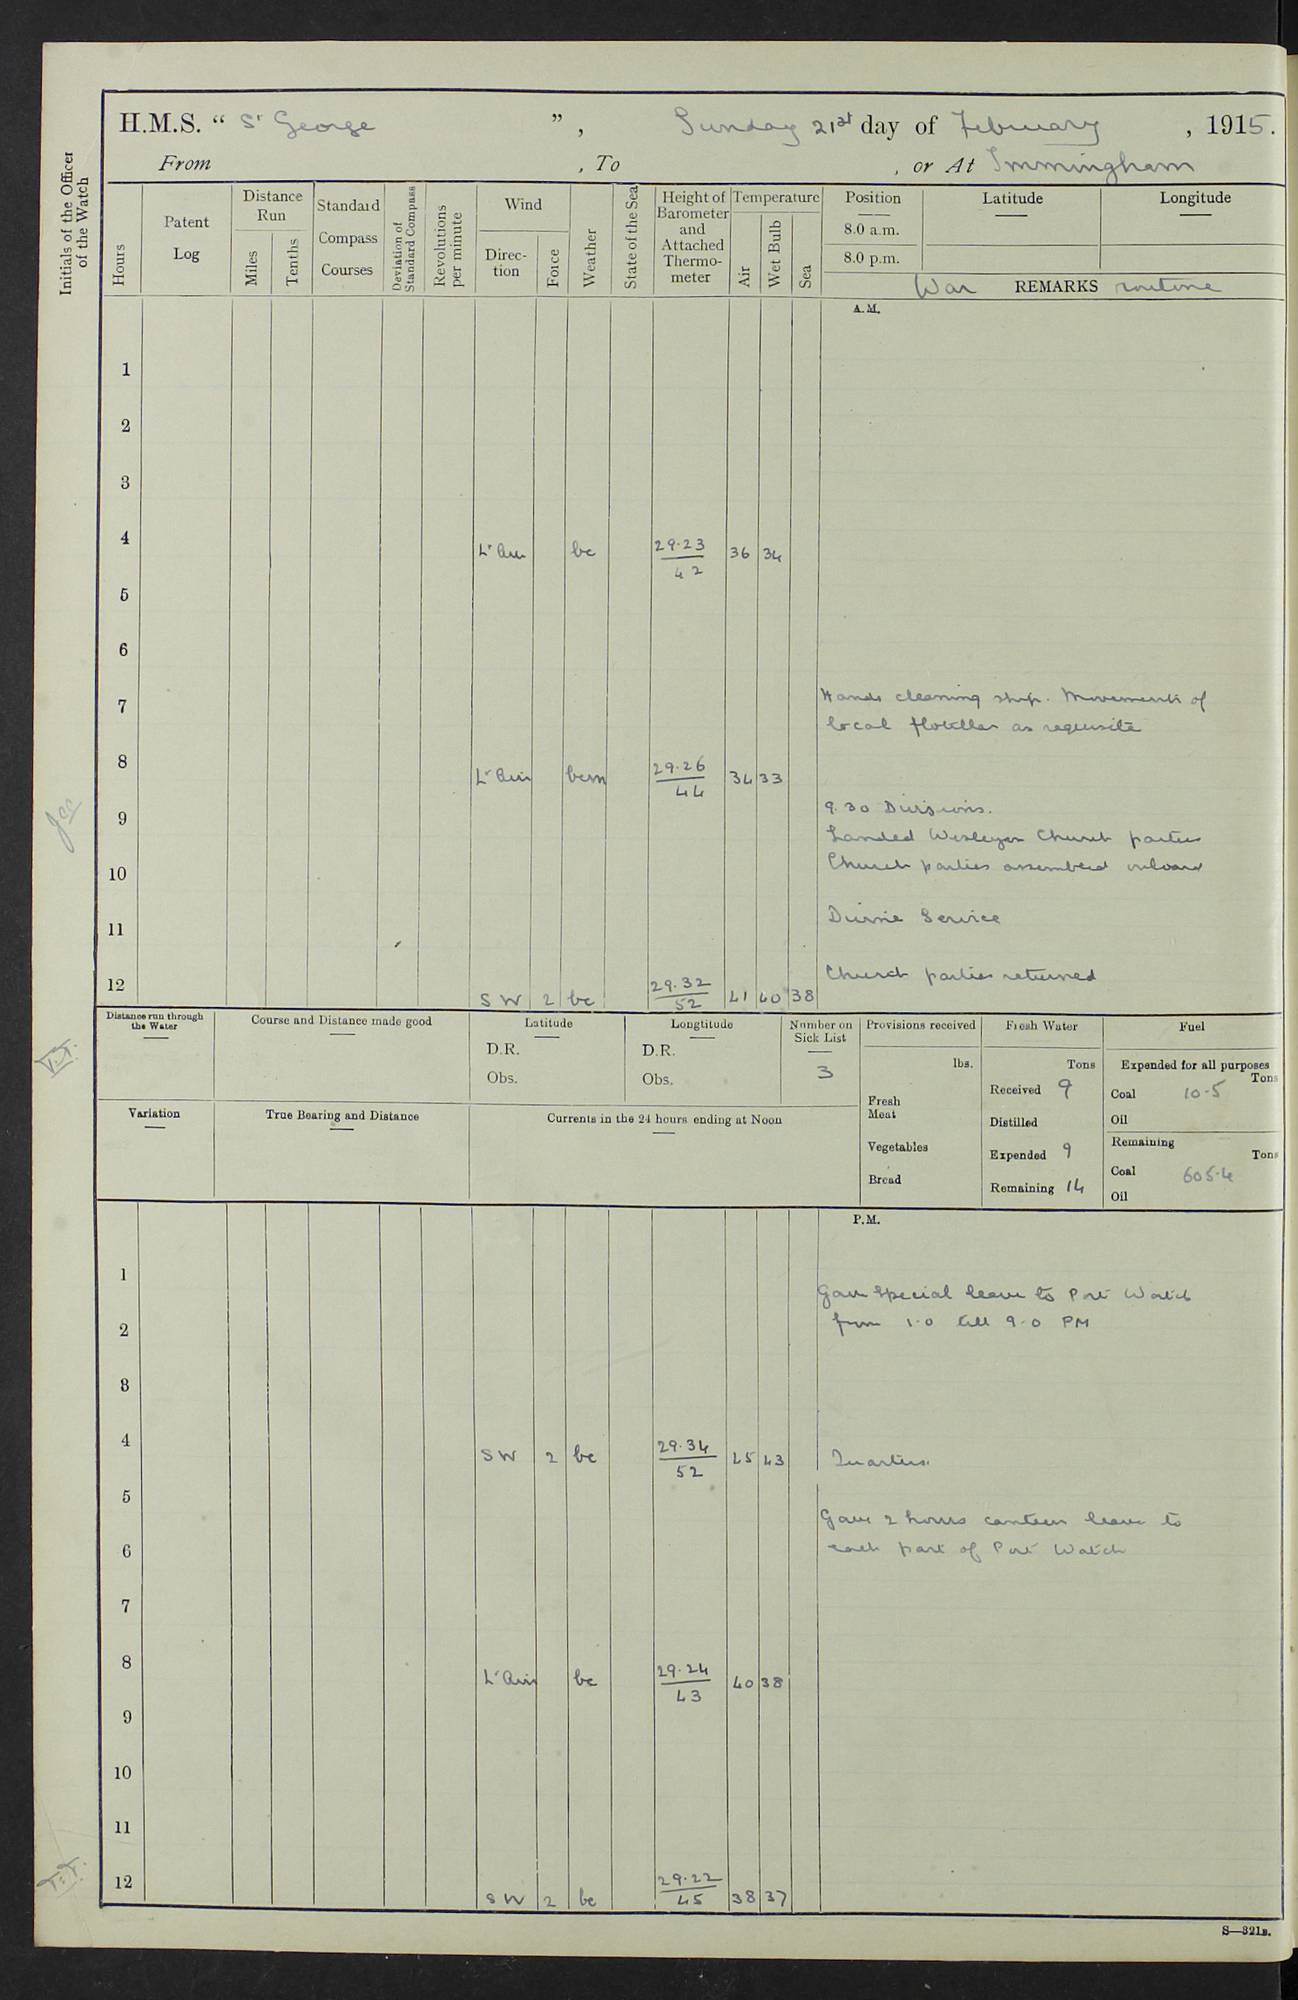 H.M.S. “ St George ” , Sunday 21st day of February , 1915.
From , To , or At Immingham
Initials of the Officer of the Watch
Hours
Patent Log
Distance Run
Miles
Tenths
Standard Compass Courses
Deviation of Standard Compass
Revolutions per minute
Wind
Direction
Force
Weather
State of the Sea
Height of Barometer and Attached Thermometer
Temperature
Air
Wet Bulb
Sea
Position Latitude Longitude
8.0 a.m.
8.0 p.m.
War REMARKS routine
A.M.
1
2
3
4 Lt Air bc 29.23/42 36 34
5
6
7 Hands cleaning ship. Movements of
local flotillas as requisite
8 Lt Air bcm 29.26/44 34 33
9 9.30 Divisions.
Landed Wesleyan Church parties
10 Church parties assembled onboard
11 Divine Service
Church parties returned
12 SW 2 bc 29.32/52 41 40 38
Distance run through the Water
Course and Distance made good
Latitude
D.R.
Obs.
Longtitude
D.R.
Obs.
Number on Sick List
3
Provisions received
lbs.
Fresh Meat
Vegetables
Bread
Fresh Water
Tons
Received 9
Distilled
Expended 9
Remaining 14
Fuel
Expended for all purposes
Tons
Coal 10.5
Oil
Remaining
Tons
Coal 605.4
Oil
Variation
True Bearing and Distance
Currents in the 24 hours ending at Noon
P.M.
1 Gave Special leave to Port Watch
2 from 1.0 till 9.0 PM
3
4 SW 2 bc 29.34/52 45 43 Quarters.
5 Gave 2 hours canteen leave to
6 each part of Port Watch
7
8 Lt Air bc 29.24/43 40 38
9
10
11
12 SW 2 bc 29.22/45 38 37
S—321B.